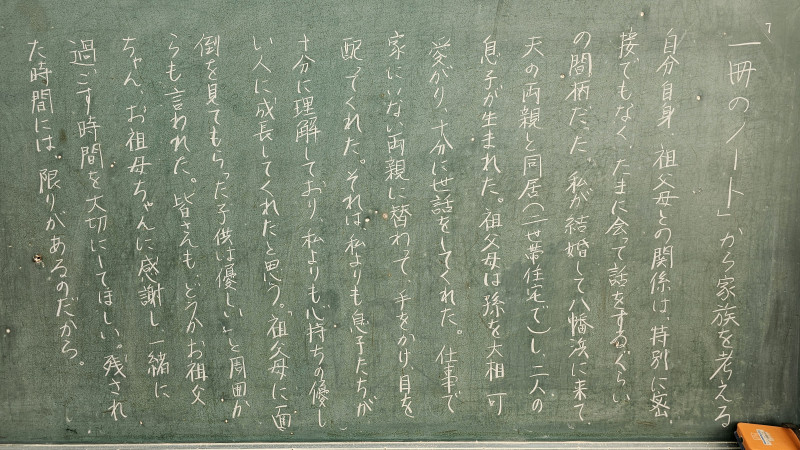 「一冊のノート」から家族を考える
自分自身、祖父母との関係は、特別に密
接でもなく、たまに会って話をするぐらい
の間柄だった。私が結婚して八幡浜に来て
夫の両親と同居(二世帯住宅で)し、二人の
息子が生まれた。祖父母は孫を大相可
愛がり、十分に世話をしてくれた。仕事で
家にいない両親に替わって、手をかけ、目を
配ってくれた。それは私よりも息子たちが
十分に理解しており、私よりも心持ちの優し
い人に成長してくれたと思う。「祖父母に面
倒を見てもらった子供は優しい」と周囲か
らも言われた。皆さんも、どうかお祖父
ちゃん、お祖母ちゃんに感謝し一緒に
過ごす時間を大切にしてほしい。残され
た時間には、限りがあるのだから。